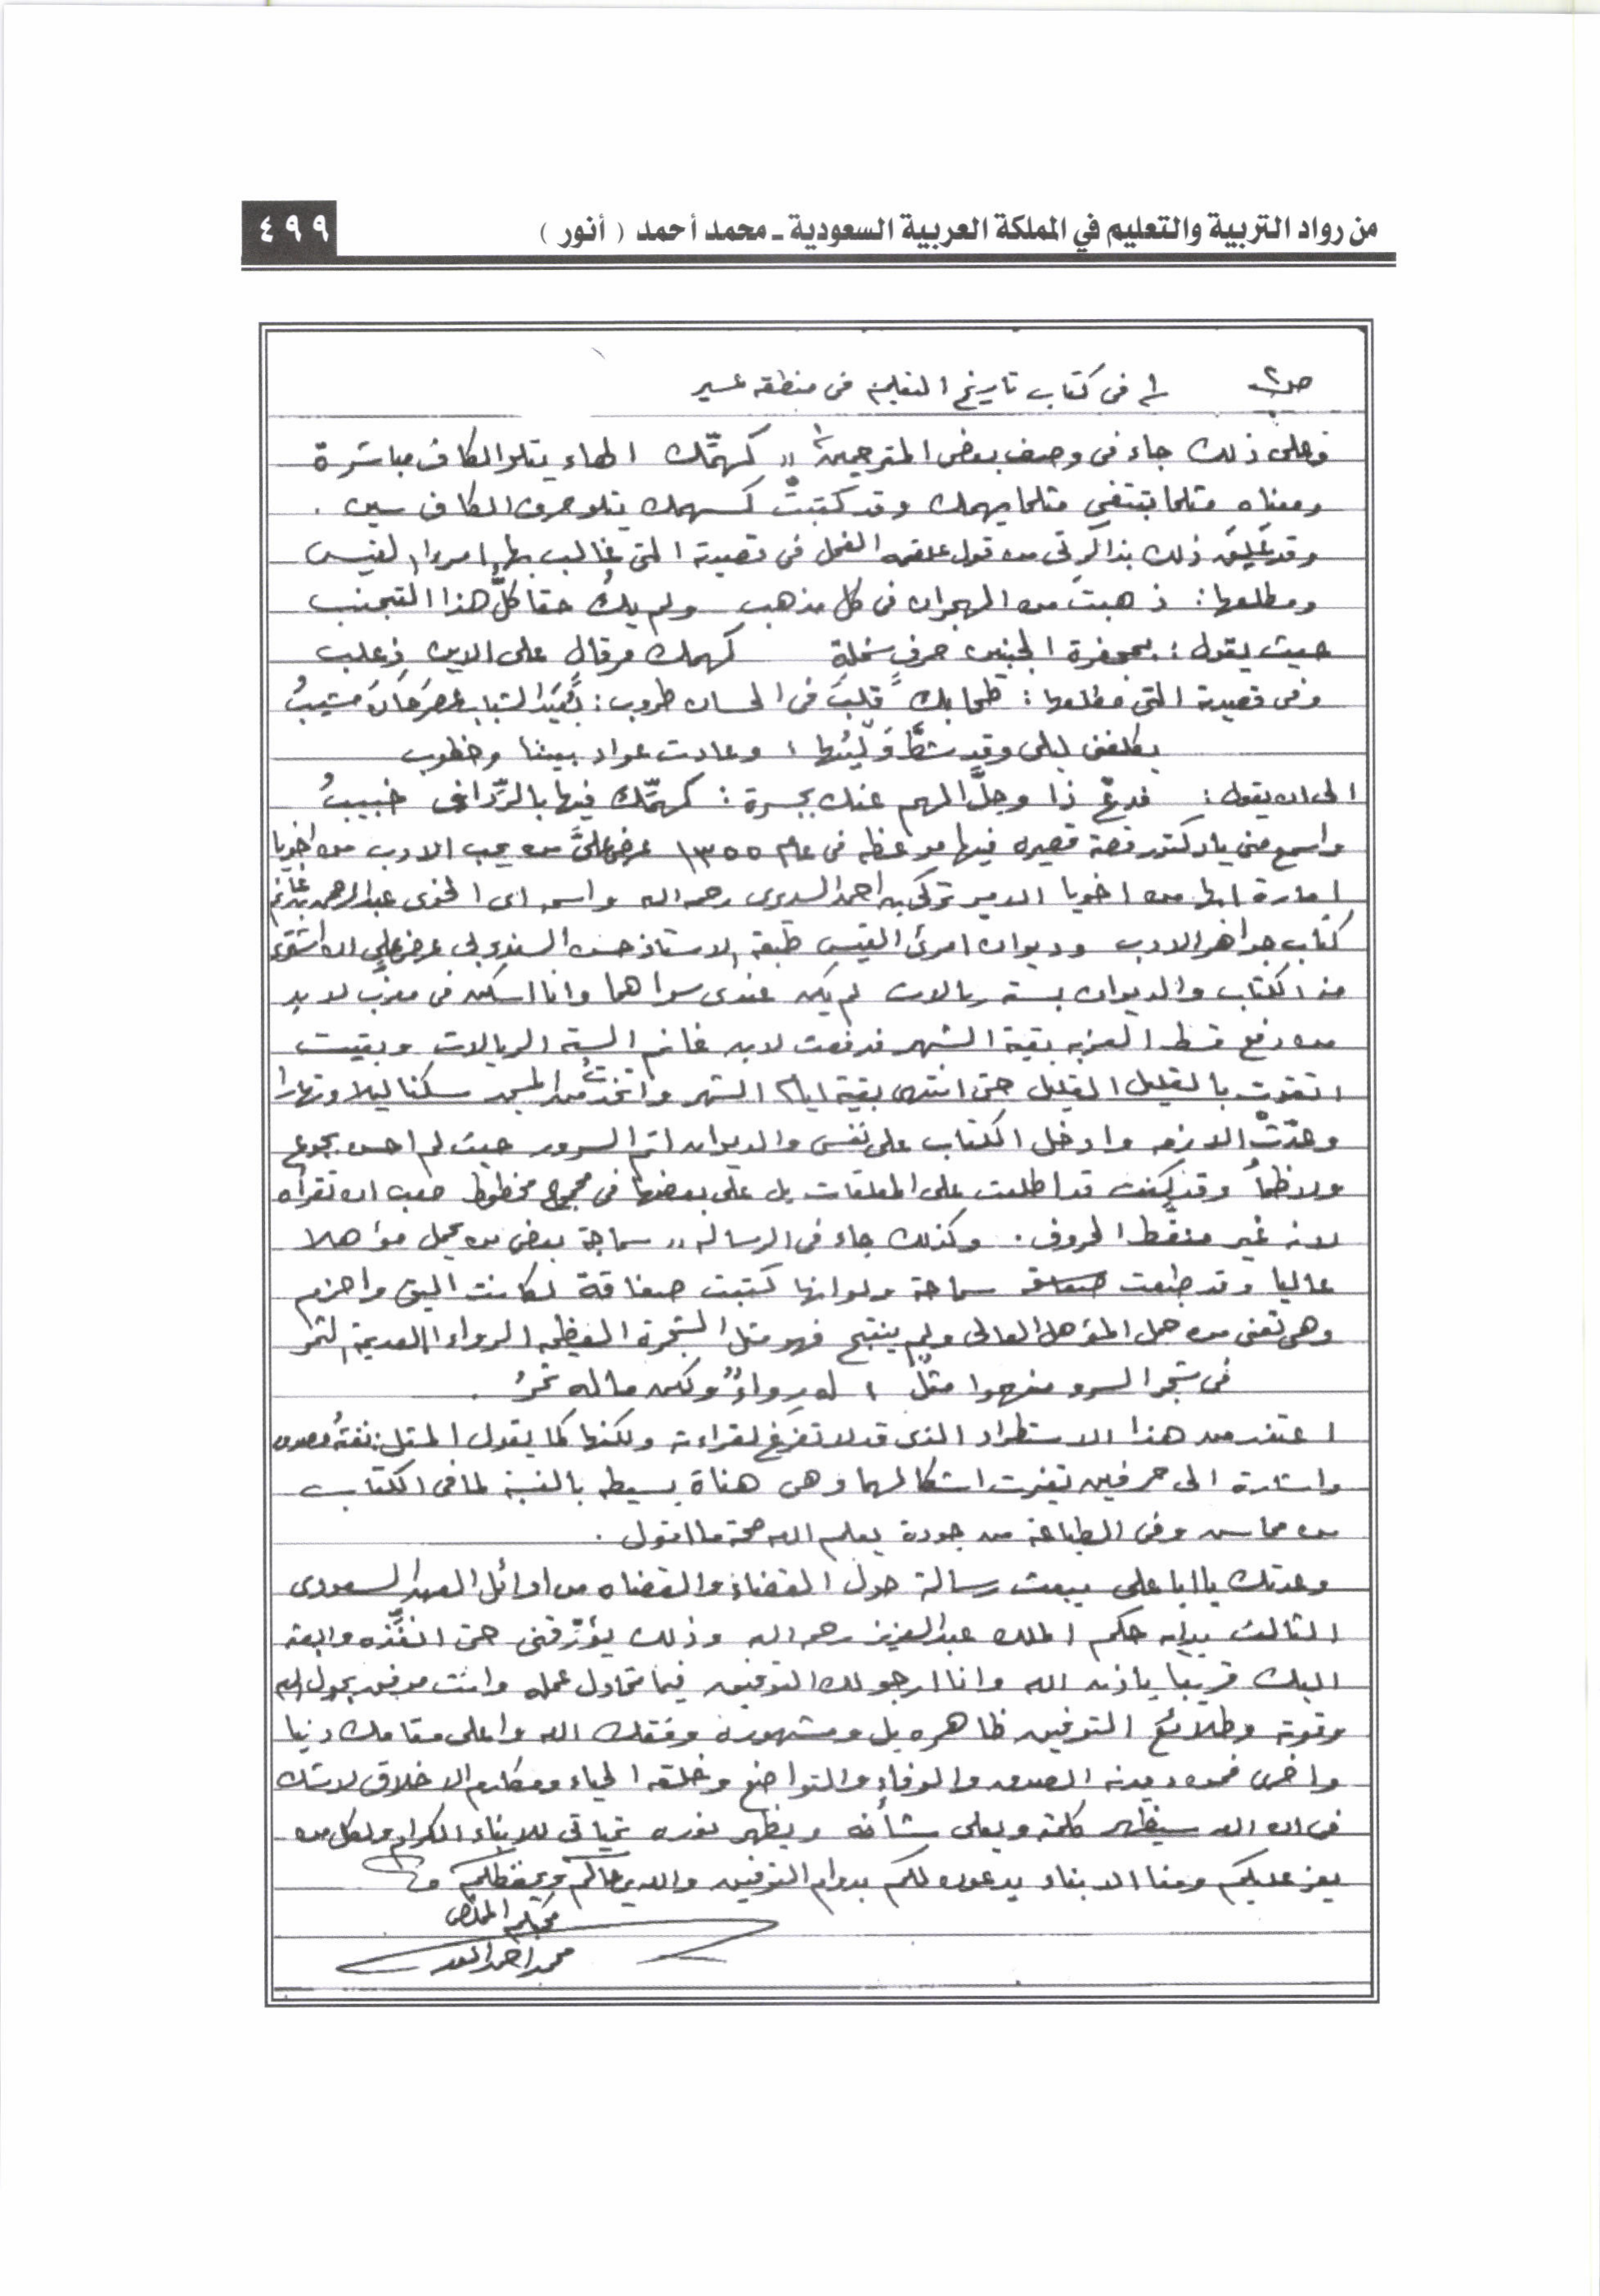 من رواد التربية والتعليم في المملكة العربية السعودية ـ محمد أحمد ( أنور )
٤٩٩
ص٢ ١/ فى كتاب تاريخ التعليم فى منطقة عسير
وعلى ذلك جاء فى وصف بعض المترجمين١ "كهمّك الهاء يتلو الكاف مباشرة
ومعناه مثلما تبتغي مثلما يهمك وقد كتبتْ كسهمك يتلو حرف الكاف سين .
وقد عَلِقَ ذلك بذاكرتى من قول علقمه الفحل فى قصيدة التى غالب بها امروا لقيس
ومطلعها : ذهبتَ من الهجران فى كل مذهب ولم يكُ حقا كلُّ هذا التجنب
حيث يقول : بمجفرة الجنبين حرفٍ شملةٍ كهمك مرقالٍ على الاين ذعلب
وفى قصيدة التى مطلعها : طحا بك قلبٌ فى الحسان طروب : بُعَيْدَ الشباب عصرَ حَانَ مشيبُ
يكلفنى ليلى وقد شطَّ وَلْيُها ؛ وعادت عواد بيننا وخطوب
الى ان يقول : فدعْ ذا وجلِّ الهم عنك بجسرة : كهمّك فيها بالرِّدافى خبيبُ
واسمع منى يا دكتور قصة قصيره فيها موعظه فى عام ١٣٥٥ عرض علىَّ من يحب الادب من اخويا
امارة ابها من اخويا الامير تركى بن احمد السديرى رحمه الله واسم اى الخوى عبدالرحمن بن غانم
كتاب جواهر الادب وديوان امرئ القيس طبعة الاستاذ حسن السندوبى عرض على ان اشترى
منه الكتاب والديوان بسته ريالات لم يكن عندى سواهما وانا اسكن فى معزب لا بد
من دفع قسط العزبه بقية الشهر فدفعت لابن غانم السته الريالات وبقيت
اتقوت بالقليل القليل حتى انتهى بقية ايام الشهر واتخذتُ من المسجد سكنا ليلا ونهارا
وعدّتْ الازمه وادخل الكتاب على نفسى والديوان اتم السرور حيث لم احس بجوع
ولا ظمأ وقد كنت قد اطلعت على المعلقات بل على بعضها فى مجموع مخطوط صعب ان تقرأه
لانه غير منقّط الحروف . وكذلك جاء فى الرساله "سماجة بعض من يحمل مؤهلا
عاليا وقد طبعت سماحة ولو انها كتبت صفاقة لكانت اليق واحزم
وهى تعنى من حمل المؤهل العالى ولم ينتج فهو مثل الشجرة العظيمه الرواء العديمة الثمر
فى شجر السرو منهموا مثلٌ ؛ له رواءٌ ولكن ماله ثمرُ .
اعتذر من هذا الاستطراد الذى قد لا تفرغ لقراءته ولكنها كما يقول المثل : نفثةُ مصدور
واشارة الى حرفين تغيرت اشكالهما وهى هناة بسيطه بالنسبة لما فى الكتاب
من محاسن وفى الطباعة من جودة يعلم الله صحة ما اقول .
وعدتك يا ابا على ببعث رسالة حول القضاء والقضاه من اوائل العهد السعودى
الثالث بدايه حكم الملك عبدالعزيز رحمه الله وذلك يؤرّقنى حتى انفِّذه وابعثه
اليك قريبا باذن الله وانا ارجو لك التوفيق فيما تحاول عمله وانت موفق بحول الله
وقوته وطلائع التوفيق ظاهره بل ومشهوره وفقك الله واعلى مقامك دنيا
واخرى فمن ديدنه الصدق والوفاء والتواضع وخلقه الحياء ومكارم الاخلاق لا شك
فى ان الله سيظهر كلمته ويعلى شأنه ويظهر نوره تحياتى للابناء الكرام ولكل من
يعز عليكم ومنا الابناء يدعون لكم بدوام التوفيق والله يرعاكم ويحفظكم
محبكم المخلص
محمد احمد انور